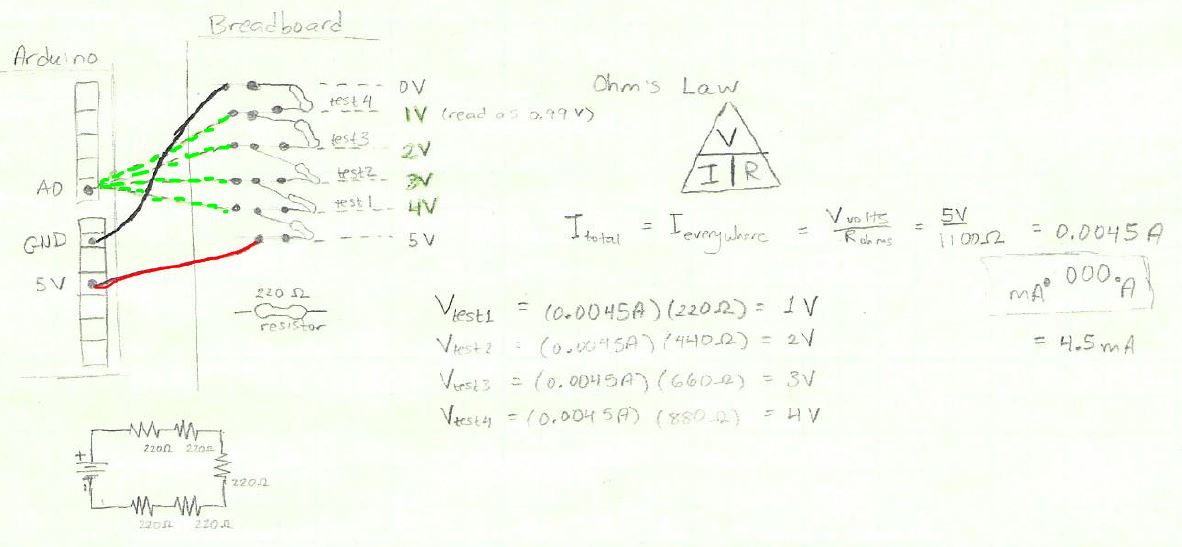 Breadboard
Arduino
0V
test4
1V (read as 0.99V)
test3
2V
test2
3V
test1
4V
5V
A0
GND
5V
220Ω
resistor
Ohm's Law
V
I R
I total = I everywhere = V volts / R ohms = 5V / 1100Ω = 0.0045A
mA 000.A
= 4.5mA
V test1 = (0.0045A)(220Ω) = 1V
V test2 = (0.0045A)(440Ω) = 2V
V test3 = (0.0045A)(660Ω) = 3V
V test4 = (0.0045A)(880Ω) = 4V
+
220Ω 220Ω
220Ω
220Ω 220Ω